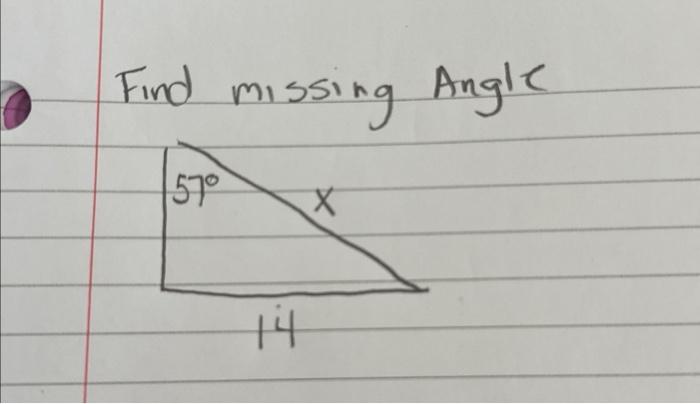 Find missing Angle
57°
x
14